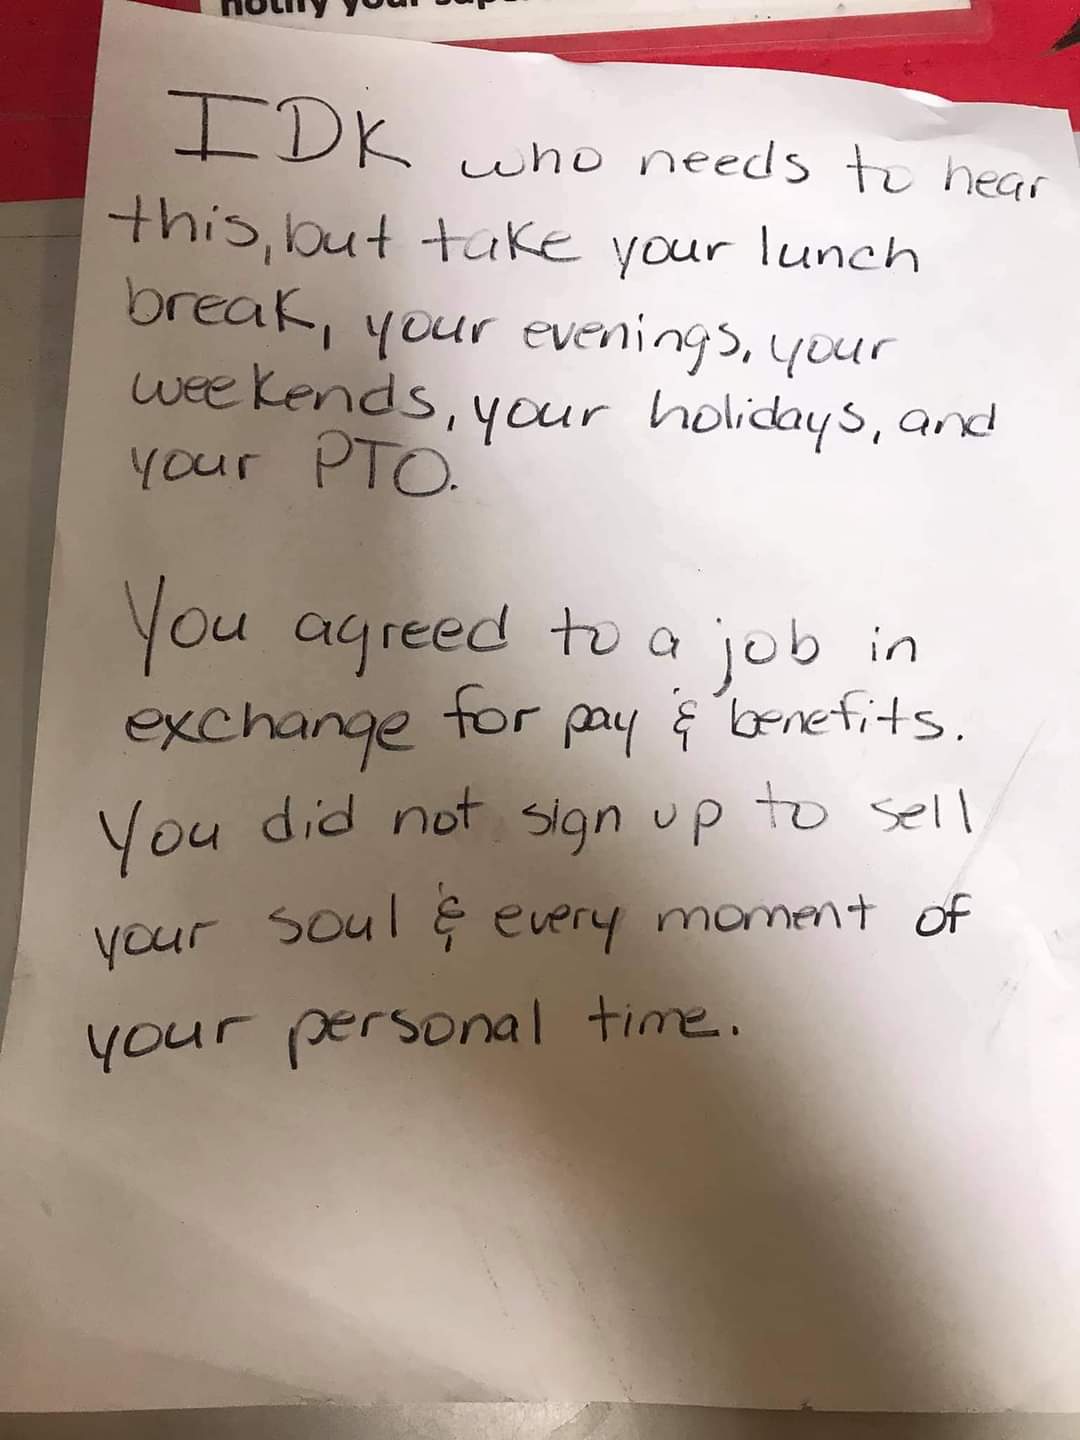 notify your
IDK who needs to hear
this, but take your lunch
break, your evenings, your
weekends, your holidays, and
your PTO.
You agreed to a job in
exchange for pay & benefits.
You did not sign up to sell
your soul & every moment of
your personal time.